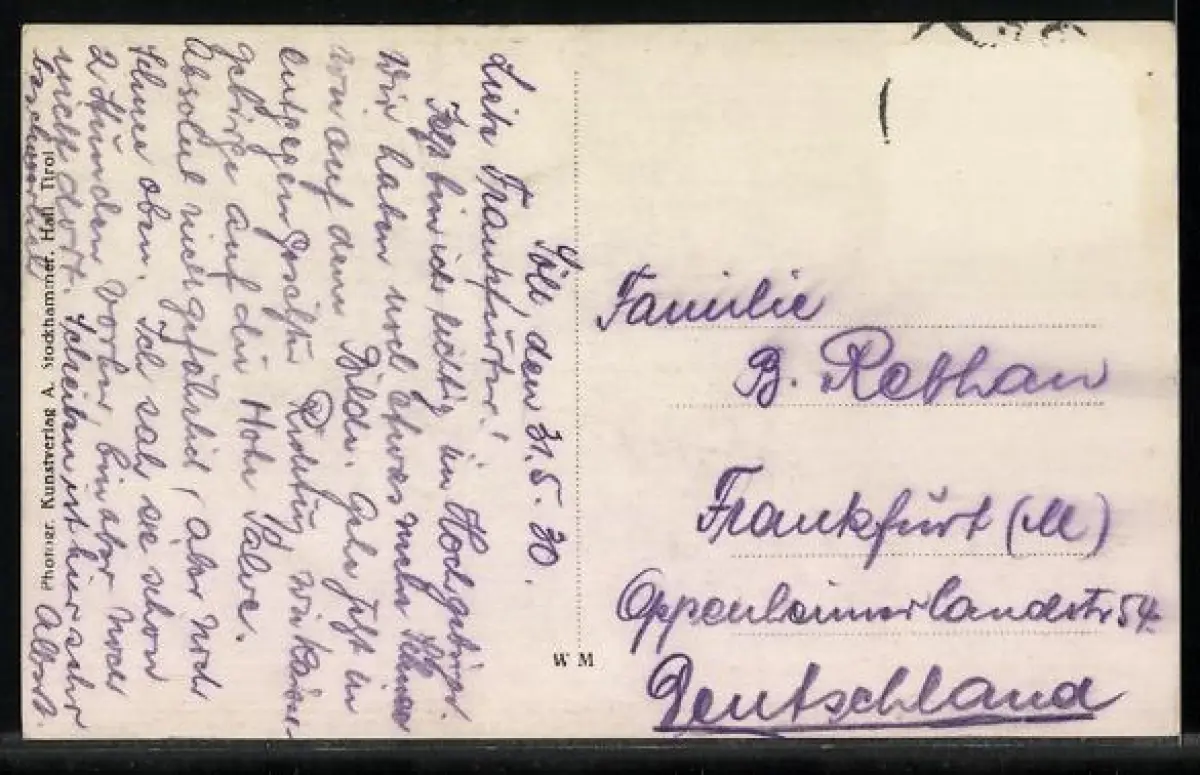 Söll, den 31.5.30.
Liebe Frankfurter!
Jetzt bin ich richtig im Hochgebirge.
Wir haben noch etwas mehr Schnee
wie auf dem Bilde. Gehe jetzt in
entgegengesetzter Richtung, wie Kaiser-
gebirge auf die Hohe Salve.
Absolut nicht gefährlich, aber noch
Schnee oben. Ich sah sie schon
2 Stunden vorher, bin aber noch
nicht dort. Schreiben ist hier sehr
beschwerlich Albert.
Photogr. Kunstverlag A. Stockhammer, Hall, Tirol
W M
Familie
B. Rebhan
Frankfurt (M)
Oppenheimerlandstr 54
Deutschland